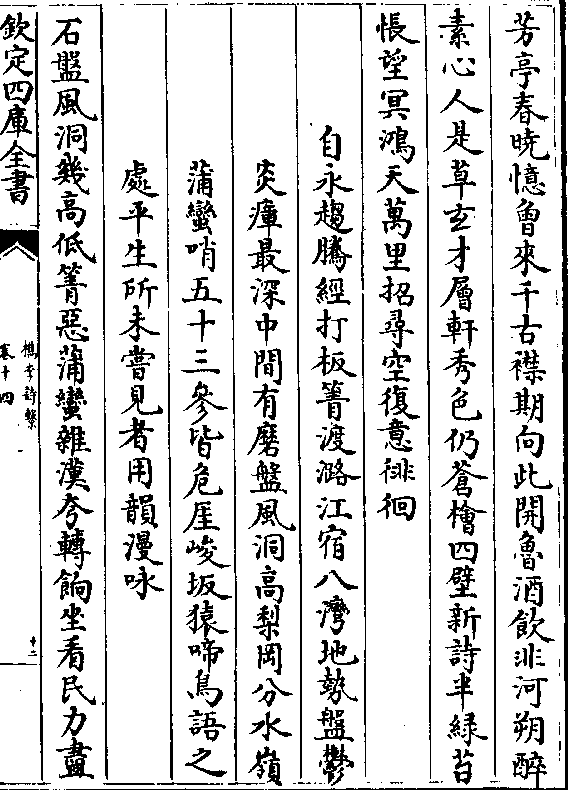 芳亭春晓憶曾來千古襟期向此開魯酒飲非河朔醉
素心人是草玄才層軒秀色仍蒼檜四壁新詩半緑苔
悵望冥鴻天萬里招尋空復意徘徊
自永趨騰經打板箐渡潞江宿八灣地勢盤鬱
炎瘴最深中間有磨盤風洞高梨岡分水嶺
蒲蠻哨五十三參皆危厓峻坂猿啼鳥語之
處平生所未嘗見者用韻漫咏
石盤風洞幾高低箐惡蒲蠻雜漢夸轉餉坐看民力盡
欽定四庫全書
檇李詩繫
卷十四
十二